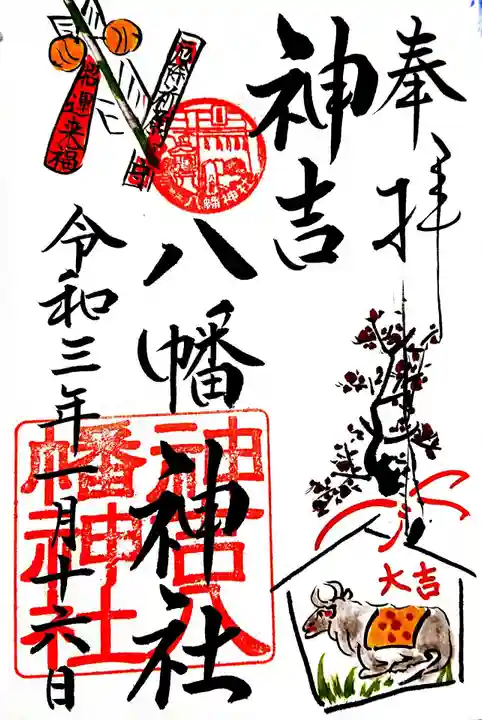 奉拝
神吉
八幡神社
令和三年一月十六日
招運来福
八幡神社
神吉八
幡神社
大吉